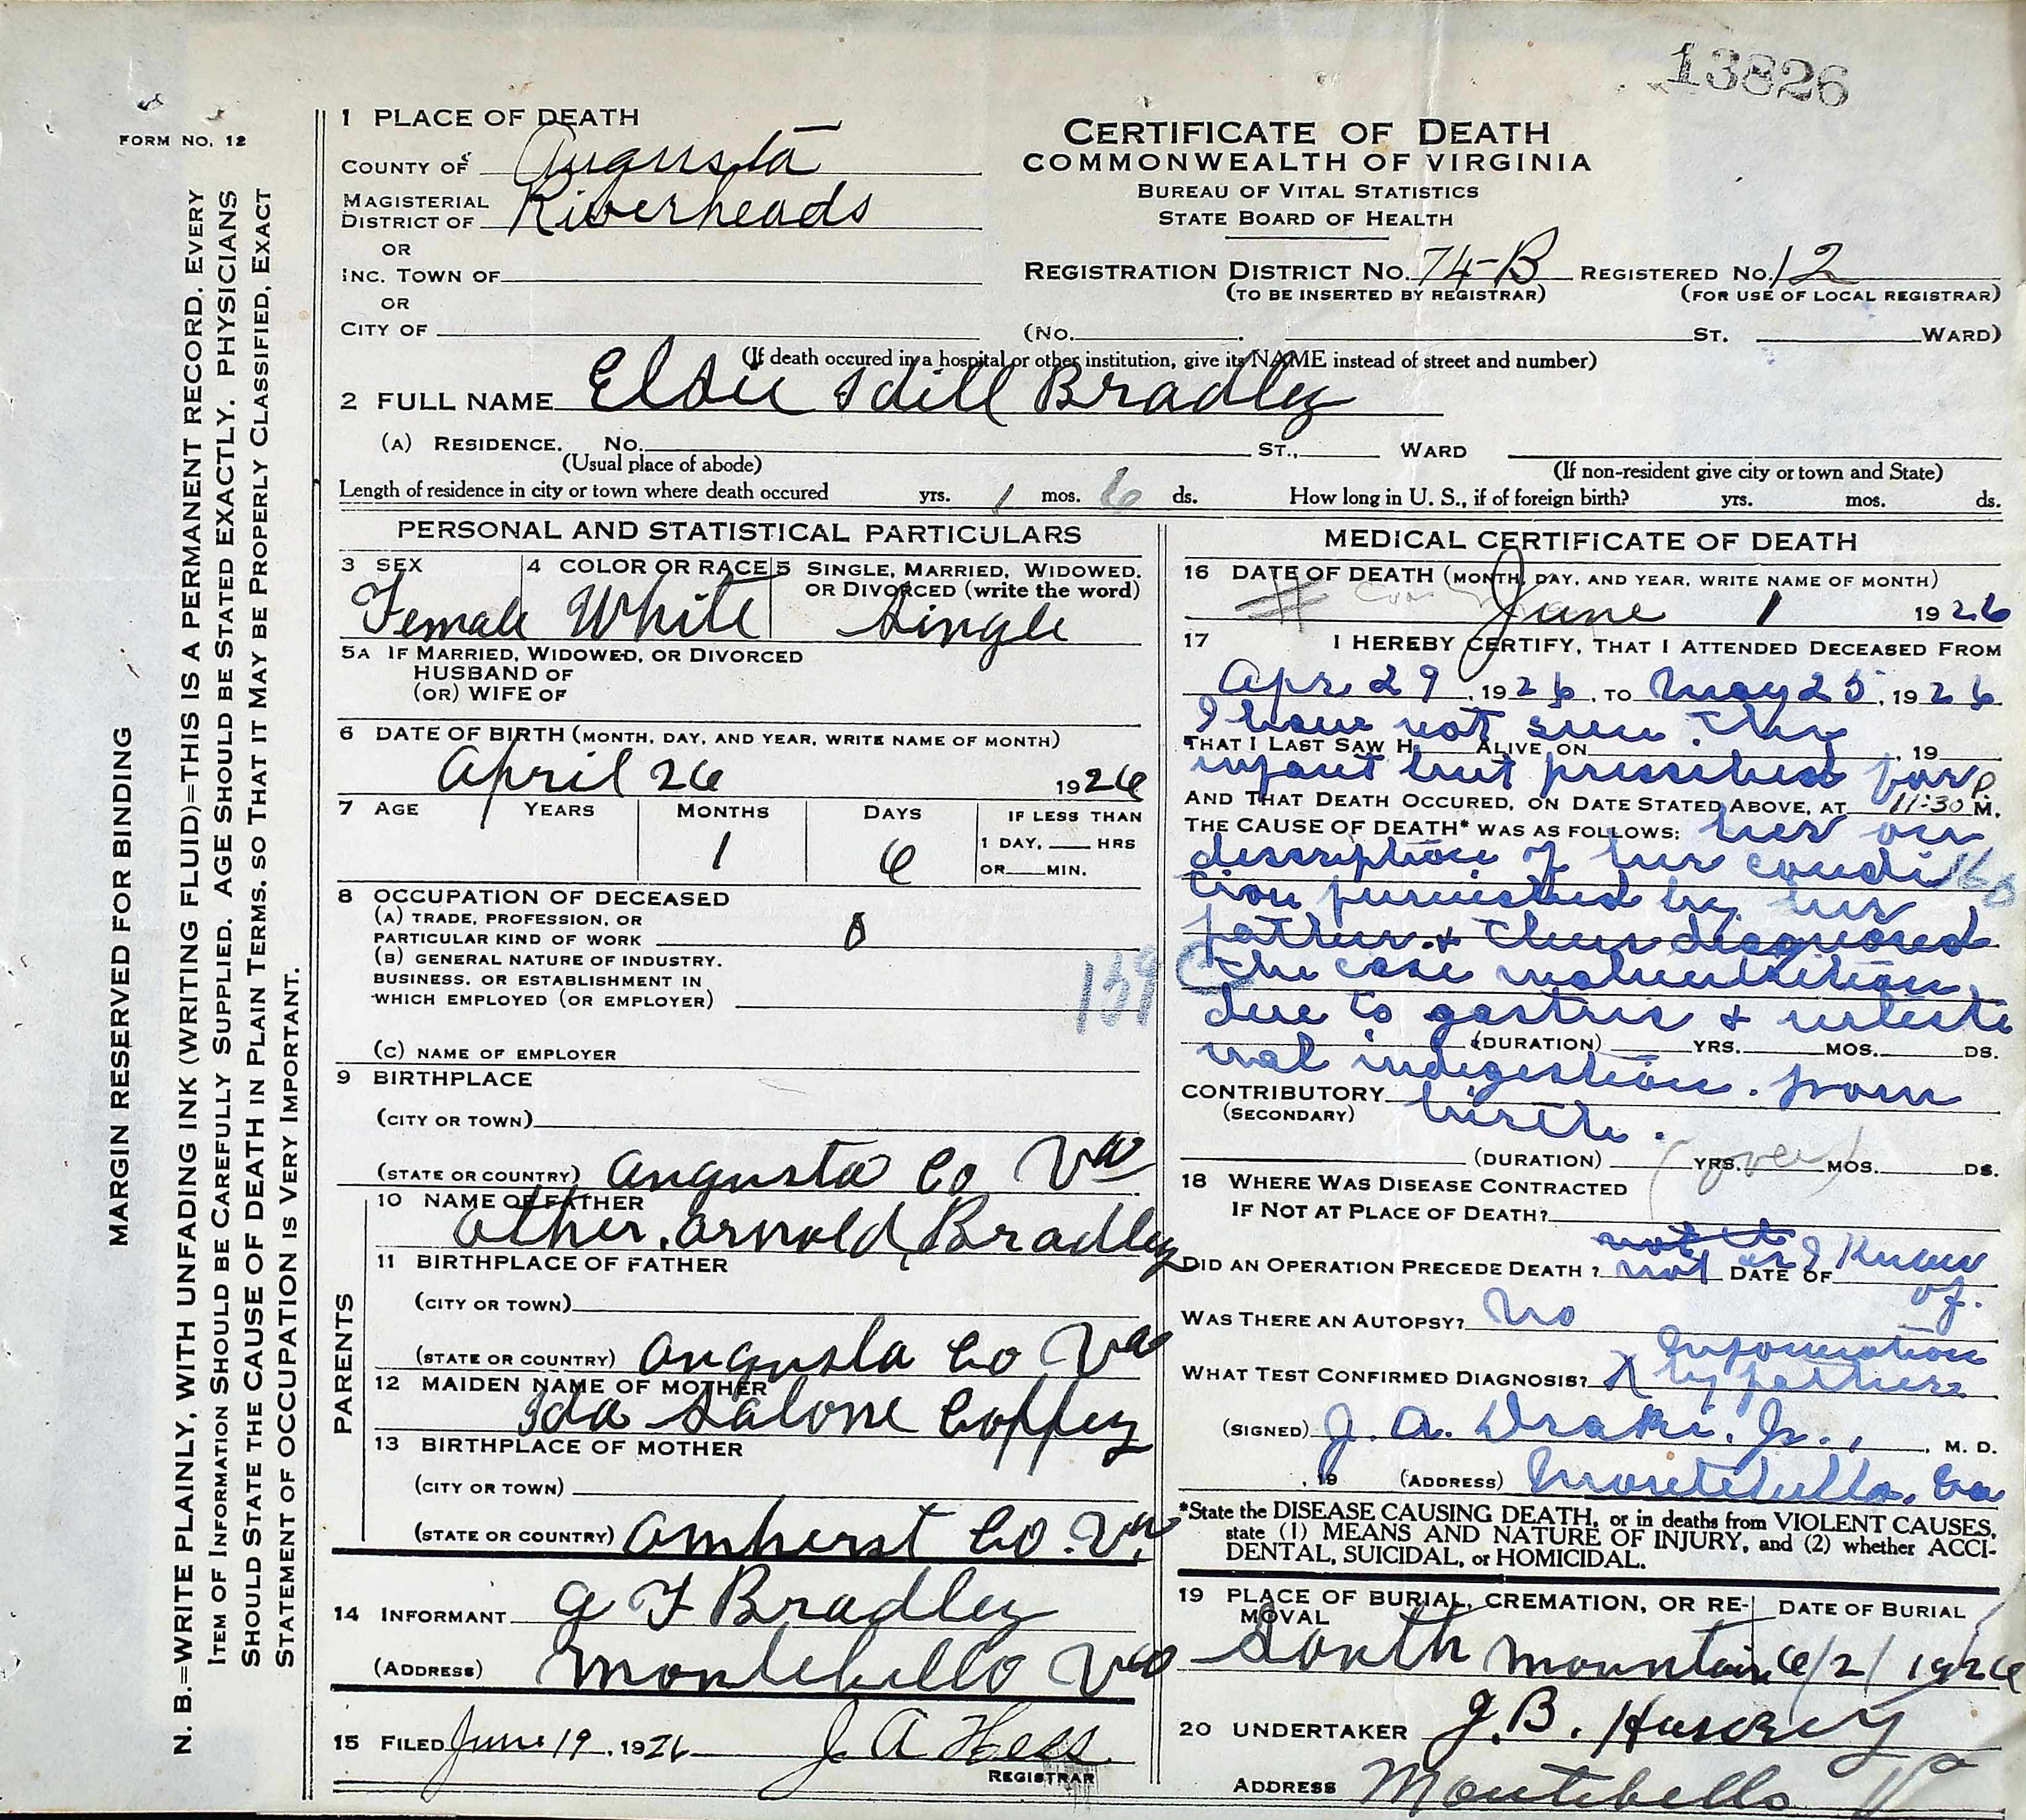 13826
FORM NO. 12
MARGIN RESERVED FOR BINDING
N. B.=WRITE PLAINLY, WITH UNFADING INK (WRITING FLUID)=THIS IS A PERMANENT RECORD. EVERY
ITEM OF INFORMATION SHOULD BE CAREFULLY SUPPLIED. AGE SHOULD BE STATED EXACTLY. PHYSICIANS
SHOULD STATE THE CAUSE OF DEATH IN PLAIN TERMS, SO THAT IT MAY BE PROPERLY CLASSIFIED, EXACT
STATEMENT OF OCCUPATION IS VERY IMPORTANT.
1 PLACE OF DEATH
COUNTY OF Augusta
MAGISTERIAL DISTRICT OF Riverheads
OR
INC. TOWN OF
OR
CITY OF
CERTIFICATE OF DEATH
COMMONWEALTH OF VIRGINIA
BUREAU OF VITAL STATISTICS
STATE BOARD OF HEALTH
REGISTRATION DISTRICT NO. 74-B REGISTERED NO. 12
(TO BE INSERTED BY REGISTRAR) (FOR USE OF LOCAL REGISTRAR)
(NO. ST. WARD)
(If death occured in a hospital or other institution, give its NAME instead of street and number)
2 FULL NAME Elsie Idill Bradley
(A) RESIDENCE. NO. ST., WARD
(Usual place of abode) (If non-resident give city or town and State)
Length of residence in city or town where death occured yrs. 1 mos. 6 ds. How long in U. S., if of foreign birth? yrs. mos. ds.
PERSONAL AND STATISTICAL PARTICULARS
3 SEX 4 COLOR OR RACE 5 SINGLE, MARRIED, WIDOWED,
OR DIVORCED (write the word)
Female White Single
5A IF MARRIED, WIDOWED, OR DIVORCED
HUSBAND OF
(OR) WIFE OF
6 DATE OF BIRTH (MONTH, DAY, AND YEAR, WRITE NAME OF MONTH)
April 26 1926
7 AGE YEARS MONTHS DAYS IF LESS THAN
1 DAY, HRS
1 6
OR MIN.
8 OCCUPATION OF DECEASED
(A) TRADE, PROFESSION, OR
PARTICULAR KIND OF WORK 0
(B) GENERAL NATURE OF INDUSTRY,
BUSINESS, OR ESTABLISHMENT IN
WHICH EMPLOYED (OR EMPLOYER)
(C) NAME OF EMPLOYER
9 BIRTHPLACE
(CITY OR TOWN)
(STATE OR COUNTRY) Augusta Co Va
PARENTS
10 NAME OF FATHER
Other. Arnold Bradley
11 BIRTHPLACE OF FATHER
(CITY OR TOWN)
(STATE OR COUNTRY) Augusta Co Va
12 MAIDEN NAME OF MOTHER
Ida Salone Coffey
13 BIRTHPLACE OF MOTHER
(CITY OR TOWN)
(STATE OR COUNTRY) Amherst Co. Va.
14 INFORMANT G F Bradley
(ADDRESS) Montebello Va
15 FILED June 19, 1926 J A Hess
REGISTRAR
MEDICAL CERTIFICATE OF DEATH
16 DATE OF DEATH (MONTH, DAY, AND YEAR, WRITE NAME OF MONTH)
June 1 1926
17 I HEREBY CERTIFY, THAT I ATTENDED DECEASED FROM
Apr. 29, 1926, TO May 25, 1926
I have not seen the
THAT I LAST SAW H ALIVE ON , 19
infant but prescribed for
AND THAT DEATH OCCURED, ON DATE STATED ABOVE, AT 11:30 P. M.
THE CAUSE OF DEATH* WAS AS FOLLOWS: her on
description of her condi
tion furnished by her
father & thus diagnosed
the case malnutrition
due to gastric & intesti
(DURATION) YRS. MOS. DS.
nal indigestion. from
CONTRIBUTORY
(SECONDARY) birth.
(DURATION) YRS. MOS. DS.
(over)
18 WHERE WAS DISEASE CONTRACTED
IF NOT AT PLACE OF DEATH?
DID AN OPERATION PRECEDE DEATH? not as I know
DATE OF of.
WAS THERE AN AUTOPSY? No
Information
WHAT TEST CONFIRMED DIAGNOSIS? X by father
(SIGNED) J. A. Drake, Jr., M. D.
, 19 (ADDRESS) Montebello, Va
*State the DISEASE CAUSING DEATH, or in deaths from VIOLENT CAUSES,
state (1) MEANS AND NATURE OF INJURY, and (2) whether ACCI-
DENTAL, SUICIDAL, or HOMICIDAL.
19 PLACE OF BURIAL, CREMATION, OR RE-
MOVAL DATE OF BURIAL
South Mountain 6/2/1926
20 UNDERTAKER J. B. Harvey
ADDRESS Montebello Va